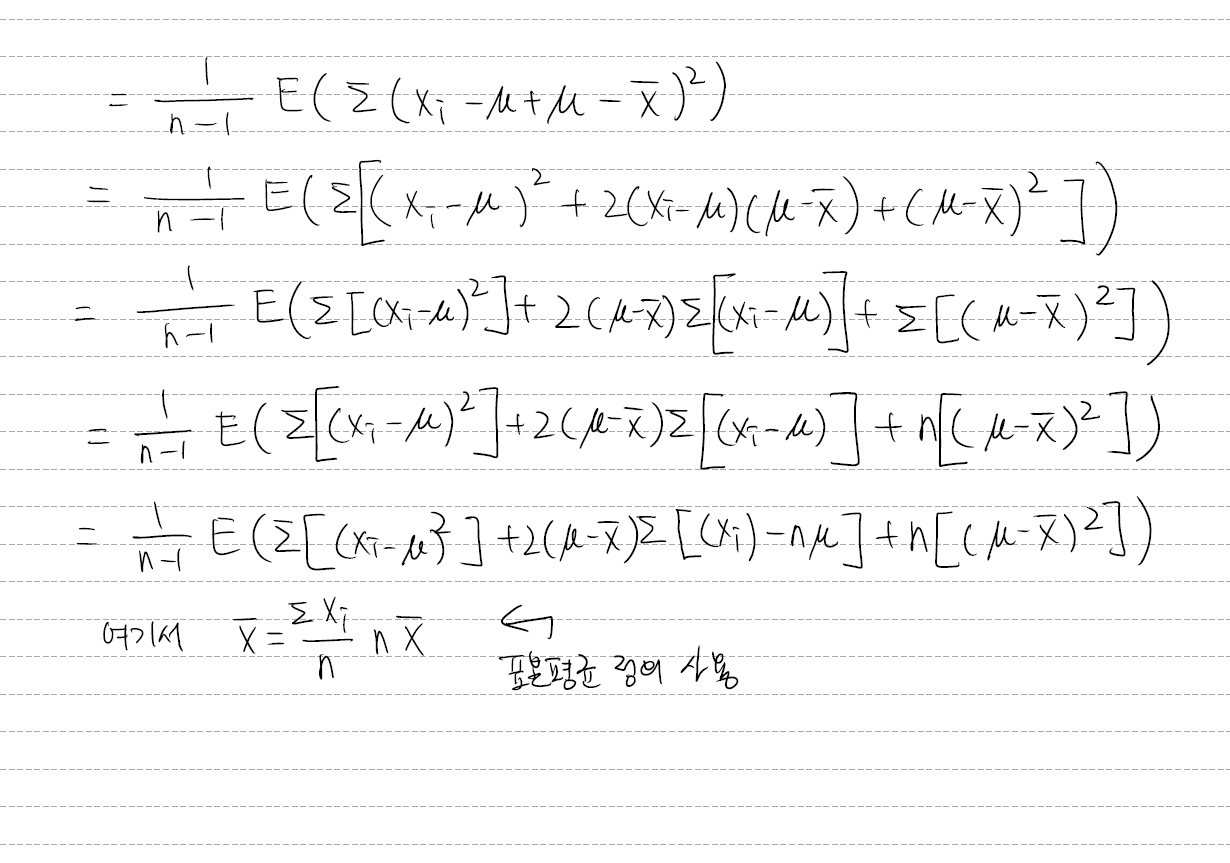 = 1/(n-1) E(Σ(xᵢ-μ+μ-x̄)²)
= 1/(n-1) E(Σ[(xᵢ-μ)²+2(xᵢ-μ)(μ-x̄)+(μ-x̄)²])
= 1/(n-1) E(Σ[(xᵢ-μ)²]+2(μ-x̄)Σ[(xᵢ-μ)]+Σ[(μ-x̄)²])
= 1/(n-1) E(Σ[(xᵢ-μ)²]+2(μ-x̄)Σ[(xᵢ-μ)]+n[(μ-x̄)²])
= 1/(n-1) E(Σ[(xᵢ-μ)²]+2(μ-x̄)Σ[(xᵢ)-nμ]+n[(μ-x̄)²])
여기서 x̄ = Σxᵢ/n n x̄ ←
표본평균 정의 사용